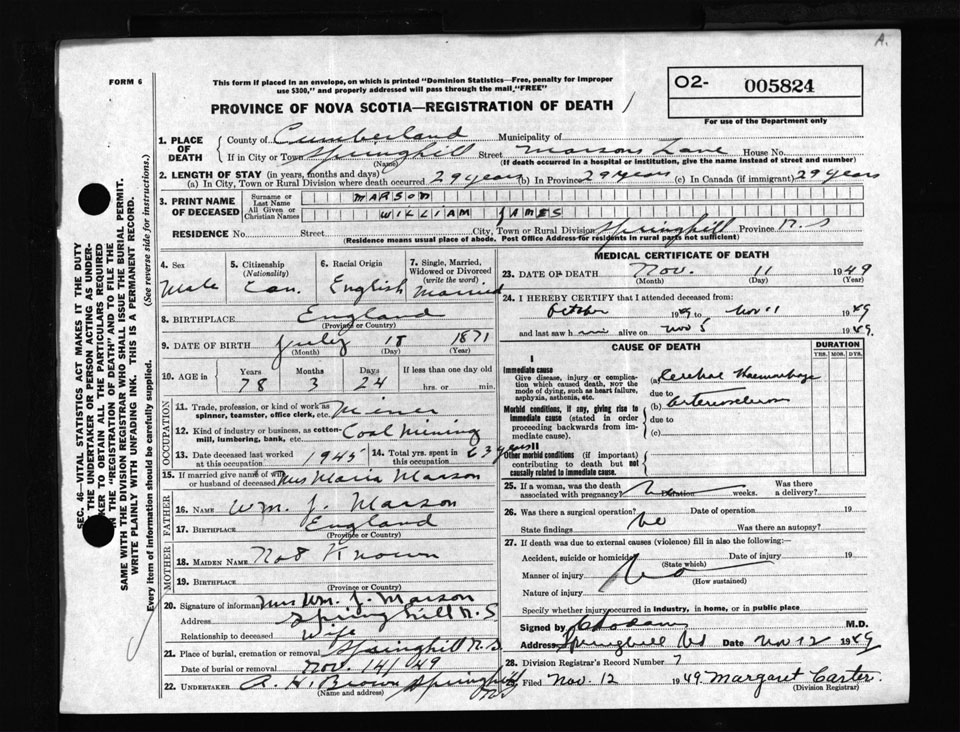 A.
FORM 6
This form if placed in an envelope, on which is printed "Dominion Statistics—Free, penalty for improper
use $300," and properly addressed will pass through the mail "FREE"
PROVINCE OF NOVA SCOTIA—REGISTRATION OF DEATH
O2- 005824
For use of the Department only
1. PLACE OF DEATH
County of Cumberland Municipality of
If in City or Town Springhill Street Marsons Lane House No.
(Name) (If death occurred in a hospital or institution, give the name instead of street and number)
2. LENGTH OF STAY (in years, months and days)
(a) In City, Town or Rural Division where death occurred 29 years (b) In Province 29 years (c) In Canada (if immigrant) 29 years
3. PRINT NAME OF DECEASED
Surname or Last Name MARSON
All Given or Christian Names WILLIAM JAMES
RESIDENCE No. Street City, Town or Rural Division Springhill Province N.S
(Residence means usual place of abode. Post Office Address for residents in rural parts not sufficient)
4. Sex Male
5. Citizenship (Nationality) Can.
6. Racial Origin English
7. Single, Married, Widowed or Divorced (write the word) Married
8. BIRTHPLACE England
(Province or Country)
9. DATE OF BIRTH July 18 1871
(Month) (Day) (Year)
10. AGE in Years Months Days If less than one day old
78 3 24 hrs. or min.
OCCUPATION
11. Trade, profession, or kind of work as spinner, teamster, office clerk, etc. Miner
12. Kind of industry or business, as cotton-mill, lumbering, bank, etc. Coal Mining
13. Date deceased last worked at this occupation 1945 14. Total yrs. spent in this occupation 63 years
15. If married give name of wife or husband of deceased Mrs Maria Marson
FATHER
16. NAME Wm. J. Marson
17. BIRTHPLACE England
(Province or Country)
MOTHER
18. MAIDEN NAME Not Known
19. BIRTHPLACE
(Province or Country)
20. Signature of informant Mrs Wm. J. Marson
Address Springhill N.S
Relationship to deceased Wife
21. Place of burial, cremation or removal Springhill N.S.
Date of burial or removal Nov. 14/49
22. UNDERTAKER A. H. Brown Springhill NS
(Name and address)
MEDICAL CERTIFICATE OF DEATH
23. DATE OF DEATH Nov. 11 1949
(Month) (Day) (Year)
24. I HEREBY CERTIFY that I attended deceased from
October 1949 to Nov 11 1949
and last saw him alive on Nov 5 1949.
CAUSE OF DEATH
DURATION
YRS. MOS. DYS.
I
Immediate cause
Give disease, injury or complication which caused death, NOT the mode of dying, such as heart failure, asphyxia, asthenia, etc.
(a) Cerebral Haemorrhage
due to
Morbid conditions, if any, giving rise to immediate cause (stated in order proceeding backwards from immediate cause).
(b) Arteriosclerosis
due to
(c)
II
Other morbid conditions (if important) contributing to death but not causally related to immediate cause.
25. If a woman, was the death associated with pregnancy? No Duration weeks. Was there a delivery?
26. Was there a surgical operation? No Date of operation 19
State findings Was there an autopsy?
27. If death was due to external causes (violence) fill in also the following:
Accident, suicide or homicide Date of injury 19
(State which)
Manner of injury No
(How sustained)
Nature of injury
Specify whether injury occurred in industry, in home, or in public place
Signed by M.D.
Address Springhill NS Date Nov 12 1949
28. Division Registrar's Record Number 7
Filed Nov. 12 1949. Margaret Carter.
(Division Registrar)
SEC. 46—VITAL STATISTICS ACT MAKES IT THE DUTY
THE UNDERTAKER OR PERSON ACTING AS UNDER-
KER TO OBTAIN ALL THE PARTICULARS REQUIRED
IN THE "REGISTRATION OF DEATH" AND TO FILE THE
SAME WITH THE DIVISION REGISTRAR WHO SHALL ISSUE THE BURIAL PERMIT.
WRITE PLAINLY WITH UNFADING INK. THIS IS A PERMANENT RECORD.
Every item of information should be carefully supplied. (See reverse side for instructions.)